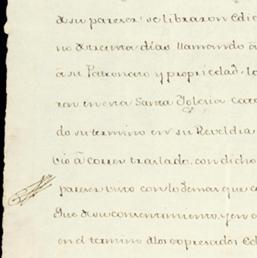 de su parecer se libraron edic
no de treinta días llamando â
â su Patronato y propriedad
ren en esta Santa Iglesia cate
do su termino en su Reveldia
vio â correr traslado, con dicho
parecer visto con lo demas que c
que de su consentimiento, y en
en el termino de los expresados Ed